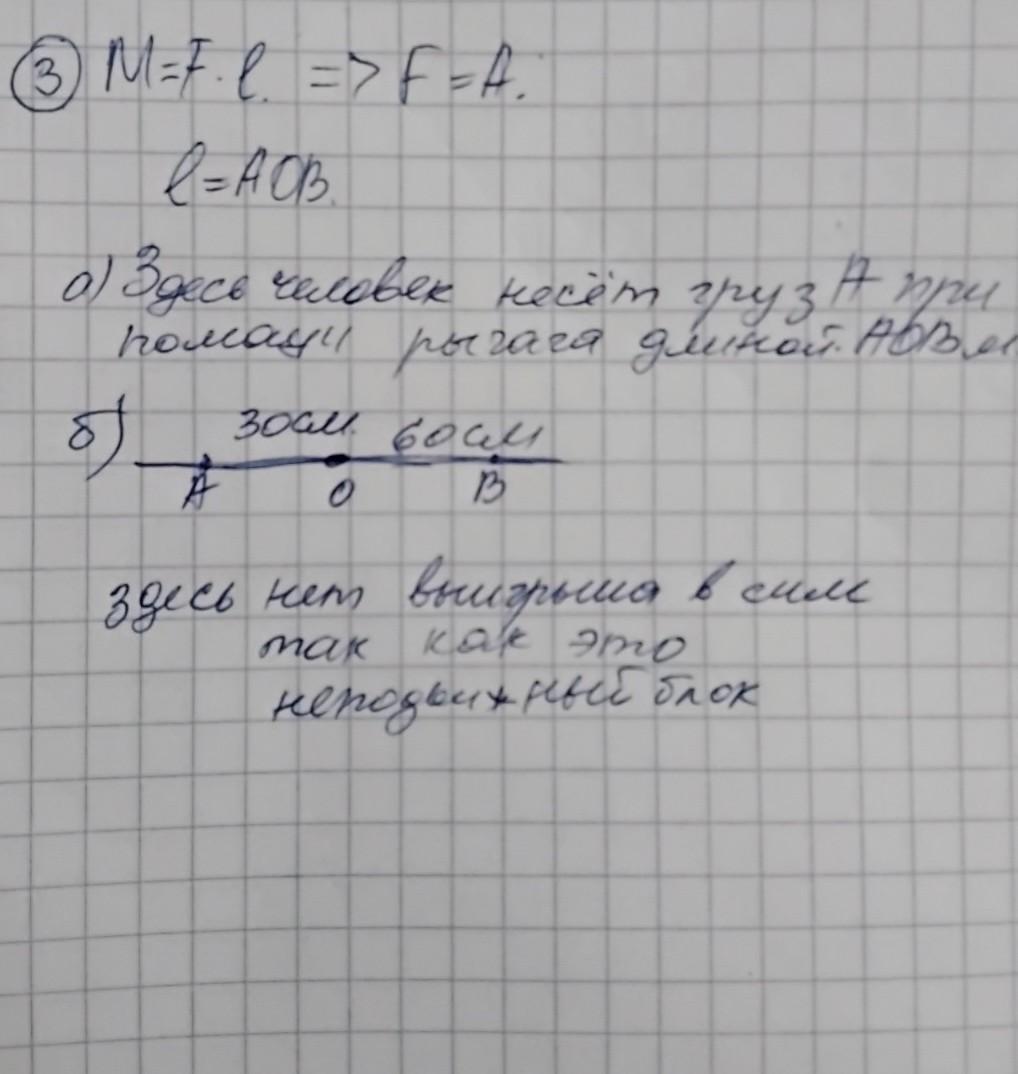 ③ M=F·l. => F=A.
l=AOB.
а) Здесь человек несёт груз А при
помощи рычага длиной AOB м
б) 30см. 60см
А О В
здесь нет выигрыша в силе
так как это
неподвижный блок